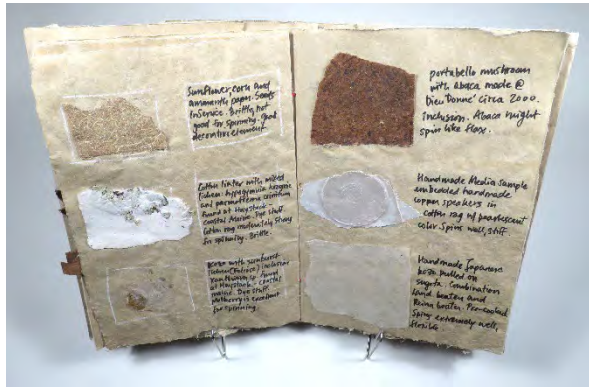 Sunflower, corn and
amaranth paper. Seeds
InService. Brittle, not
good for spinning. Good
decorative element
Cotton linter with mixed
lichen: hypogymnia
and parmotrema crinitum
found at Haystack -
coastal Maine. Dye stuff.
Cotton rag moderately strong
for spinning. Brittle.
Kozo with sunburst
lichen (foliose) inclusion
found
at Haystack - coastal
maine. Dye stuff.
Mulberry is excellent
for spinning.
portabello mushroom
with abaca made @
Dieu Donné circa 2000.
inclusion. Abaca might
spin like flax.
Handmade Media Sample
embedded handmade
copper speakers in
cotton rag w/ pearlescent
color. Spins well, stiff.
Handmade Japanese
kozo pulled on
sugeta. Combination
hand beaten and
Reina beater. Pre-cooked
Spins extremely well,
flexible